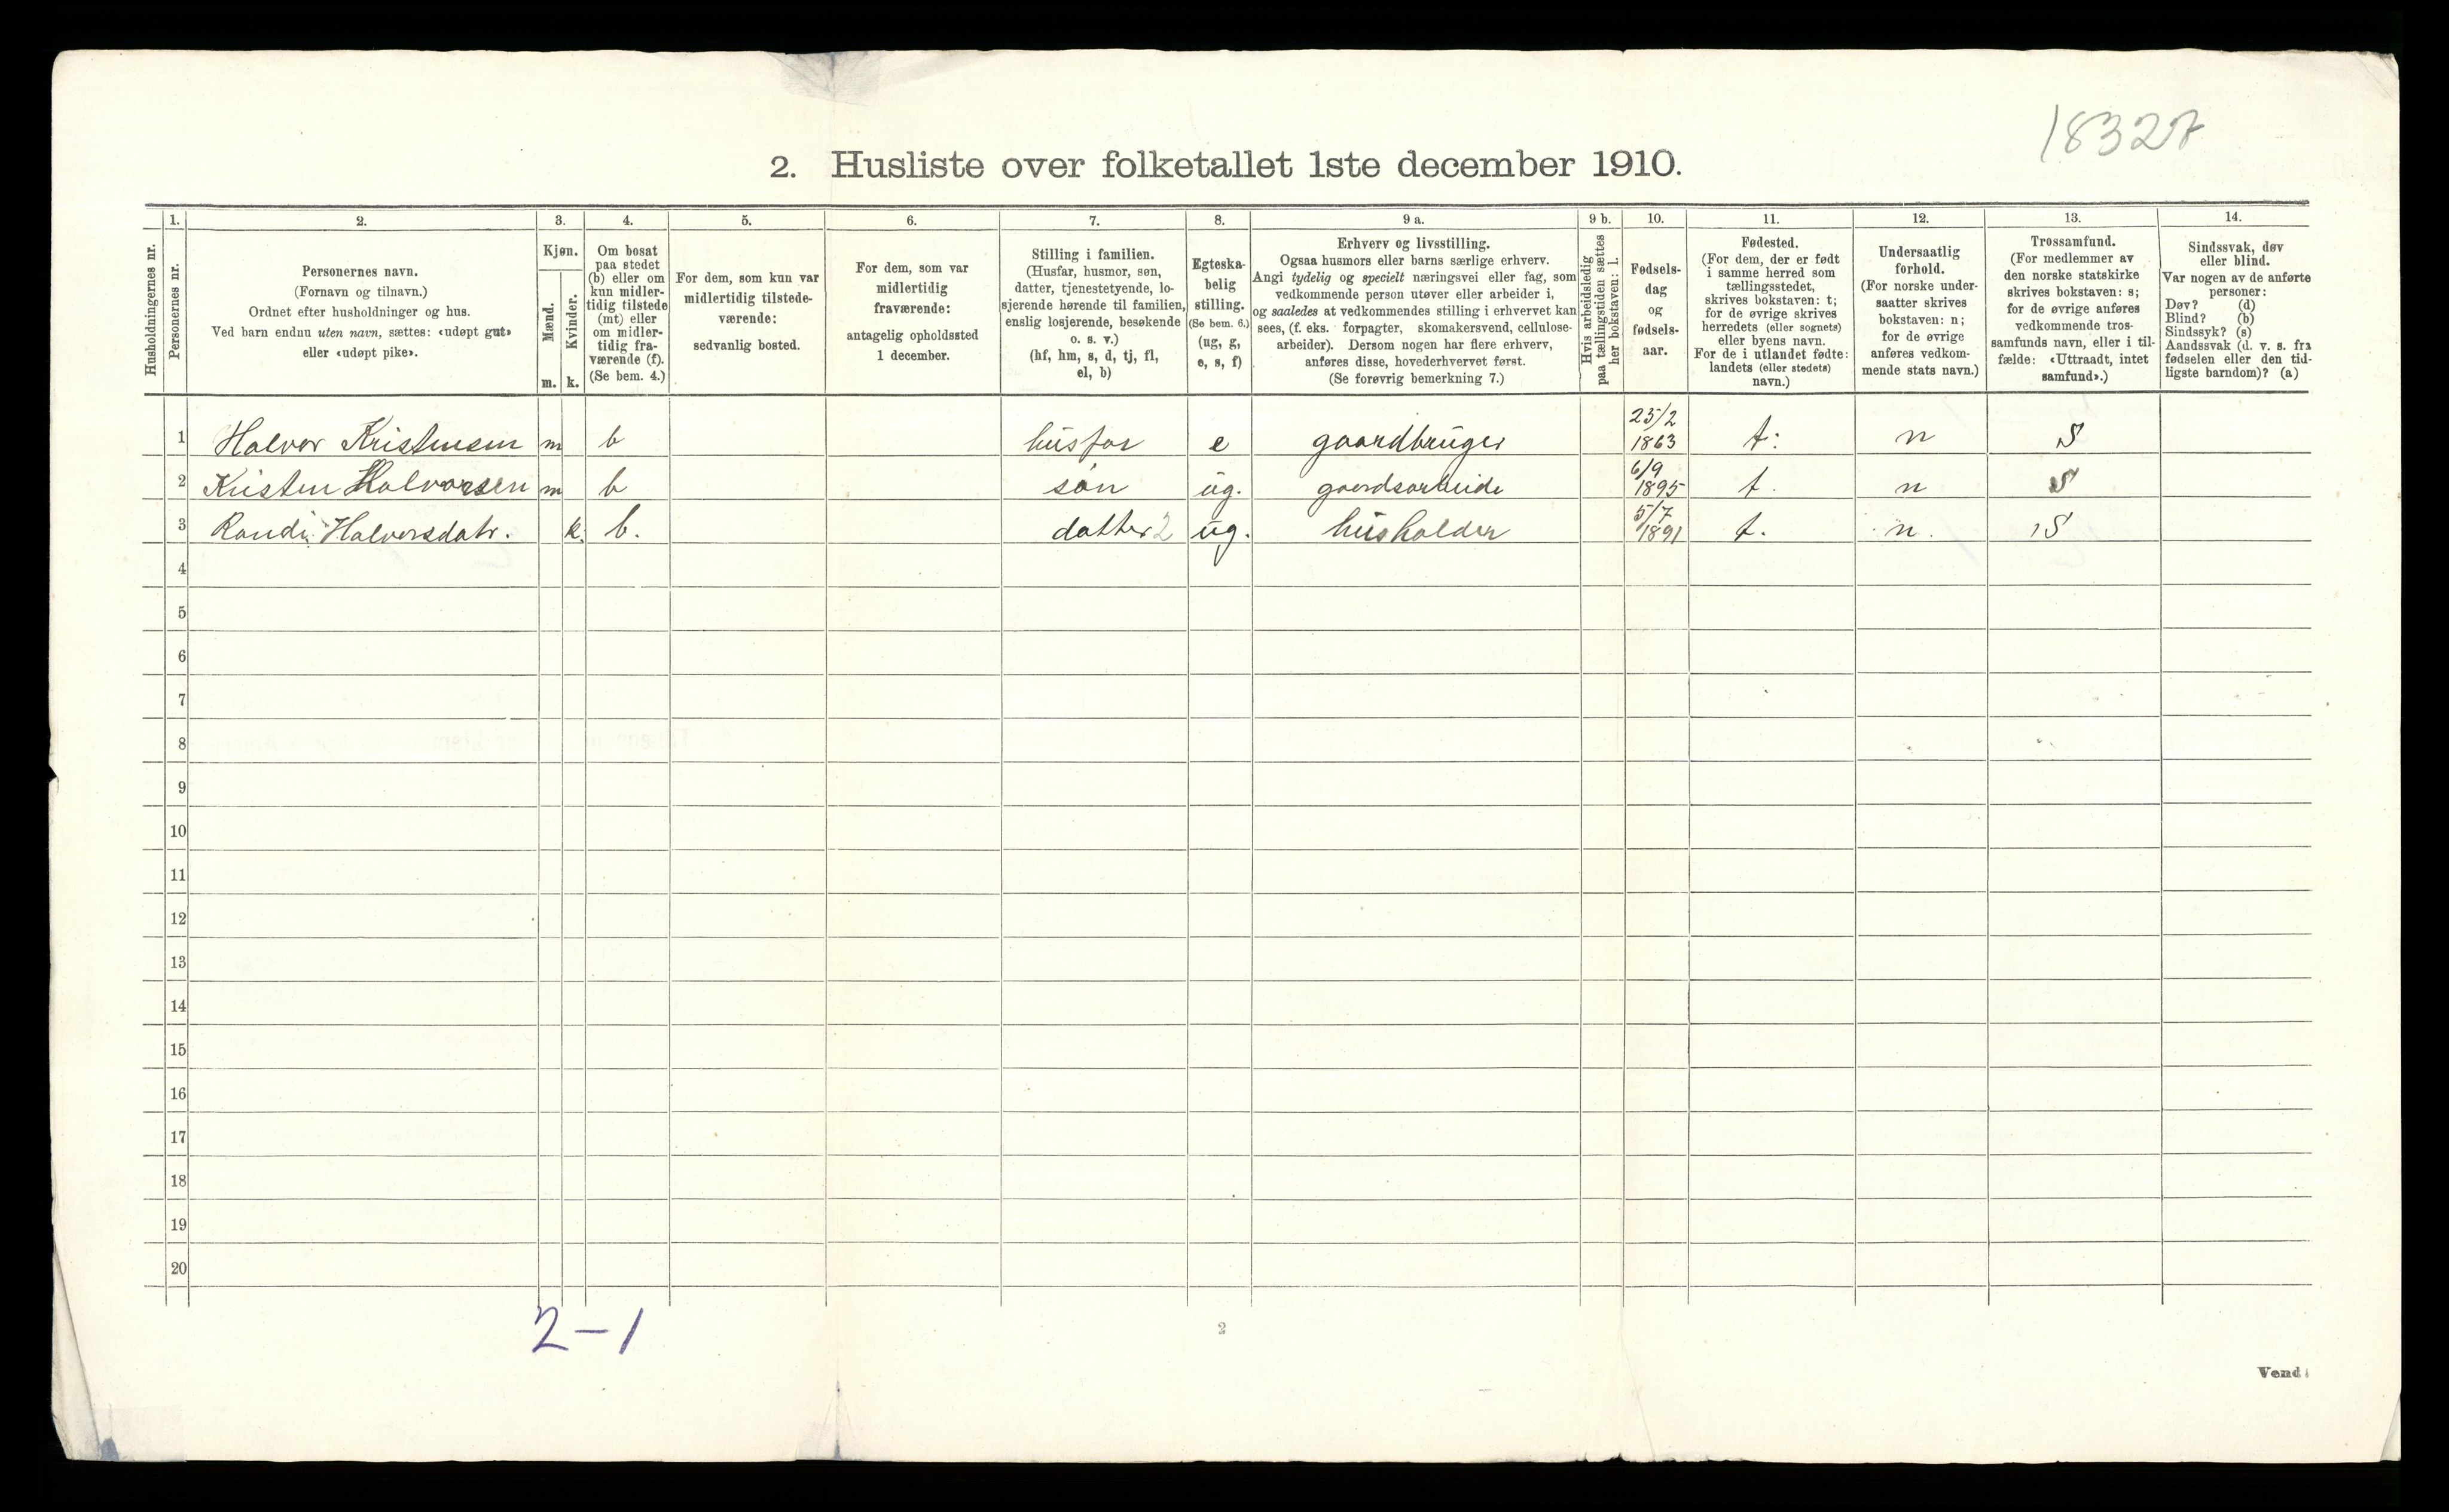 18327
2. Husliste over folketallet 1ste december 1910.
Husholdningernes nr.
1.
Personernes nr.
2.
Personernes navn.
(Fornavn og tilnavn.)
Ordnet efter husholdninger og hus.
Ved barn endnu uten navn, sættes: «udøpt gut»
eller «udøpt pike».
3.
Kjøn.
Mænd.
Kvinder.
m. k.
4.
Om bosat
paa stedet
(b) eller om
kun midler-
tidig tilstede
(mt) eller
om midler-
tidig fra-
værende (f).
(Se bem. 4.)
5.
For dem, som kun var
midlertidig tilstede-
værende:
sedvanlig bosted.
6.
For dem, som var
midlertidig
fraværende:
antagelig opholdssted
1 december.
7.
Stilling i familien.
(Husfar, husmor, søn,
datter, tjenestetyende, lo-
sjerende hørende til familien,
enslig losjerende, besøkende
o. s. v.)
(hf, hm, s, d, tj, fl,
el, b)
8.
Egteska-
belig
stilling.
(Se bem. 6.)
(ug, g,
e, s, f)
9 a.
Erhverv og livsstilling.
Ogsaa husmors eller barns særlige erhverv.
Angi tydelig og specielt næringsvei eller fag, som
vedkommende person utøver eller arbeider i,
og saaledes at vedkommendes stilling i erhvervet kan
sees, (f. eks. forpagter, skomakersvend, cellulose-
arbeider). Dersom nogen har flere erhverv,
anføres disse, hovederhvervet først.
(Se forøvrig bemerkning 7.)
9 b.
Hvis arbeidsledig
paa tællingstiden sættes
her bokstaven: l.
10.
Fødsels-
dag
og
fødsels-
aar.
11.
Fødested.
(For dem, der er født
i samme herred som
tællingsstedet,
skrives bokstaven: t;
for de øvrige skrives
herredets (eller sognets)
eller byens navn.
For de i utlandet fødte:
landets (eller stedets)
navn.)
12.
Undersaatlig
forhold.
(For norske under-
saatter skrives
bokstaven: n;
for de øvrige
anføres vedkom-
mende stats navn.)
13.
Trossamfund.
(For medlemmer av
den norske statskirke
skrives bokstaven: s;
for de øvrige anføres
vedkommende tros-
samfunds navn, eller i til-
fælde: «Uttraadt, intet
samfund».)
14.
Sindssvak, døv
eller blind.
Var nogen av de anførte
personer:
Døv? (d)
Blind? (b)
Sindssyk? (s)
Aandssvak (d. v. s. fra
fødselen eller den tid-
ligste barndom)? (a)
1 Halvor Kristensen m b husfar e gaardbruger 25/2 1863 t: n S
2 Kristen Halvorsen m b søn ug. gaardsarbeide 6/9 1895 t. n S
3 Randi Halvorsdatr. k. b. datter 2 ug. husholder 5/7 1891 t. n. S
4
5
6
7
8
9
10
11
12
13
14
15
16
17
18
19
20
2-1
2
Vend